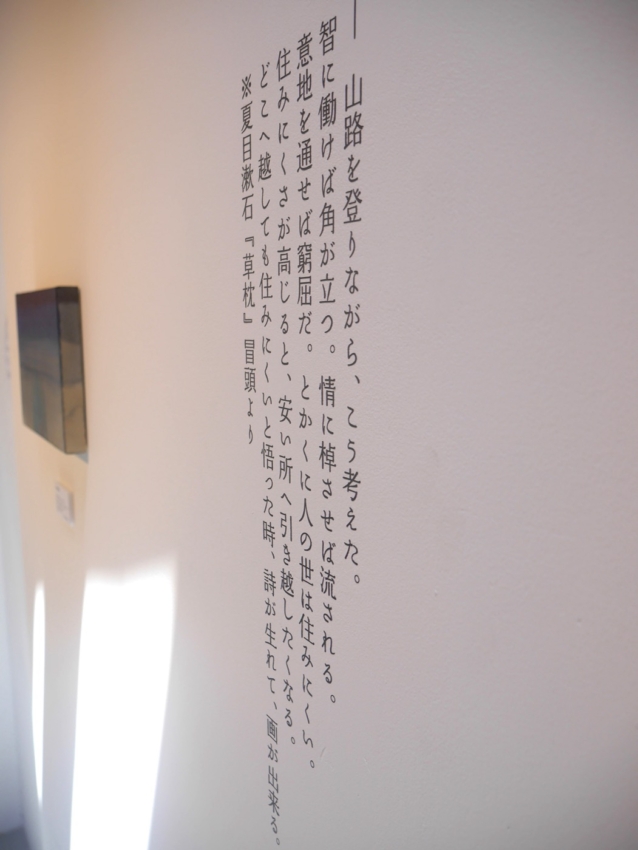 ― 山路を登りながら、こう考えた。
智に働けば角が立つ。情に棹させば流される。
意地を通せば窮屈だ。とかくに人の世は住みにくい。
住みにくさが高じると、安い所へ引き越したくなる。
どこへ越しても住みにくいと悟った時、詩が生れて、画が出来る。
※夏目漱石『草枕』冒頭より